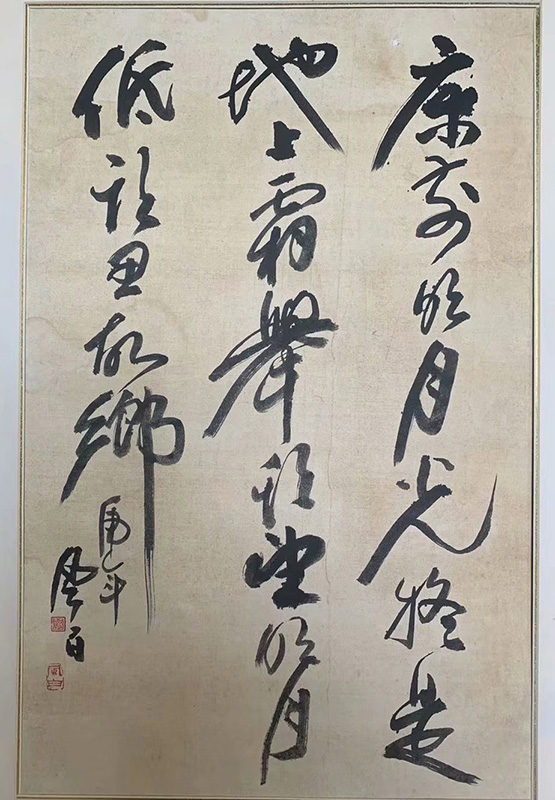 床前明月光疑是
地上霜舉頭望明月
低頭思故鄉
虎年